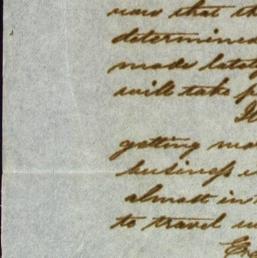 now that th
determined
made lately
will take p
It
getting mo
business
almost in
to travel